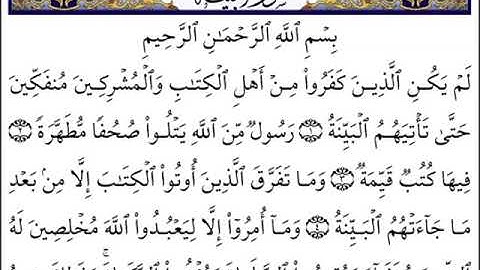 بِسۡمِ ٱللَّهِ ٱلرَّحۡمَٰنِ ٱلرَّحِيمِ
لَمۡ يَكُنِ ٱلَّذِينَ كَفَرُواْ مِنۡ أَهۡلِ ٱلۡكِتَٰبِ وَٱلۡمُشۡرِكِينَ مُنفَكِّينَ
حَتَّىٰ تَأۡتِيَهُمُ ٱلۡبَيِّنَةُ ١ رَسُولٞ مِّنَ ٱللَّهِ يَتۡلُواْ صُحُفٗا مُّطَهَّرَةٗ ٢
فِيهَا كُتُبٞ قَيِّمَةٞ ٣ وَمَا تَفَرَّقَ ٱلَّذِينَ أُوتُواْ ٱلۡكِتَٰبَ إِلَّا مِنۢ بَعۡدِ
مَا جَآءَتۡهُمُ ٱلۡبَيِّنَةُ ٤ وَمَآ أُمِرُوٓاْ إِلَّا لِيَعۡبُدُواْ ٱللَّهَ مُخۡلِصِينَ لَهُ